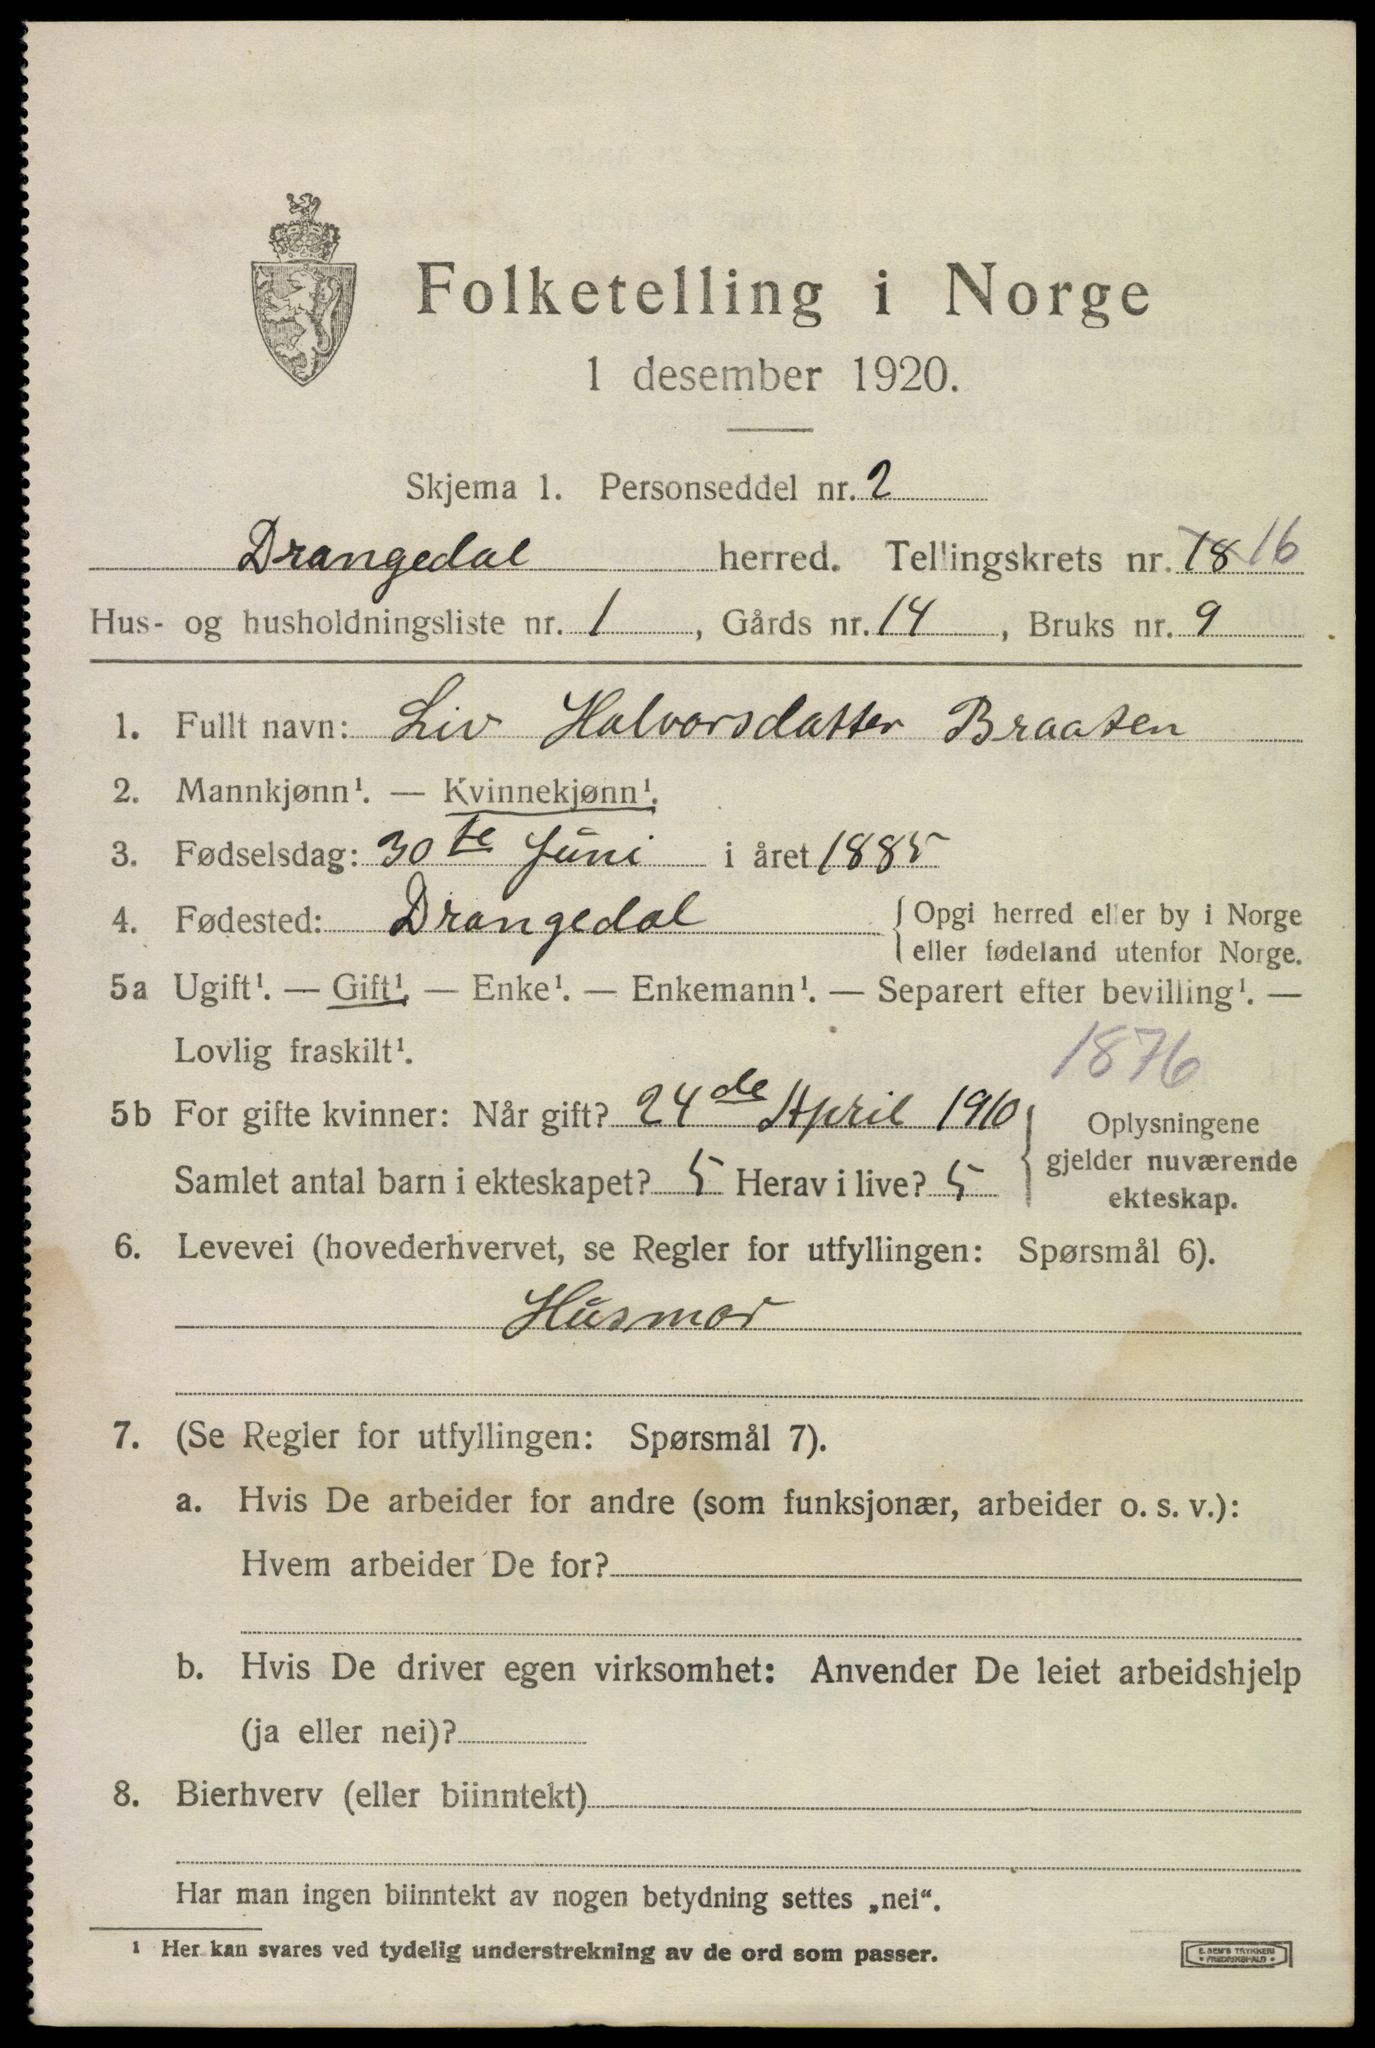 Folketelling i Norge
1 desember 1920.
Skjema 1. Personseddel nr. 2
Drangedal herred. Tellingskrets nr. 18 16
Hus- og husholdningsliste nr. 1, Gårds nr. 14, Bruks nr. 9
1. Fullt navn: Liv Halvorsdatter Braaten
2. Mannkjønn¹. — Kvinnekjønn¹.
3. Fødselsdag: 30te Juni i året 1885
4. Fødested: Drangedal { Opgi herred eller by i Norge
eller fødeland utenfor Norge.
5a Ugift¹. — Gift¹. — Enke¹. — Enkemann¹. — Separert efter bevilling¹. —
Lovlig fraskilt¹.
1876
5b For gifte kvinner: Når gift? 24de April 1910
Samlet antal barn i ekteskapet? 5 Herav i live? 5
{ Oplysningene
gjelder nuværende
ekteskap.
6. Levevei (hovederhvervet, se Regler for utfyllingen: Spørsmål 6).
Husmor
7. (Se Regler for utfyllingen: Spørsmål 7).
a. Hvis De arbeider for andre (som funksjonær, arbeider o. s. v.):
Hvem arbeider De for?
b. Hvis De driver egen virksomhet: Anvender De leiet arbeidshjelp
(ja eller nei)?
8. Bierhverv (eller biinntekt)
Har man ingen biinntekt av nogen betydning settes „nei“.
¹ Her kan svares ved tydelig understrekning av de ord som passer.
E. SEM'S TRYKKERI
FREDRIKSHALD